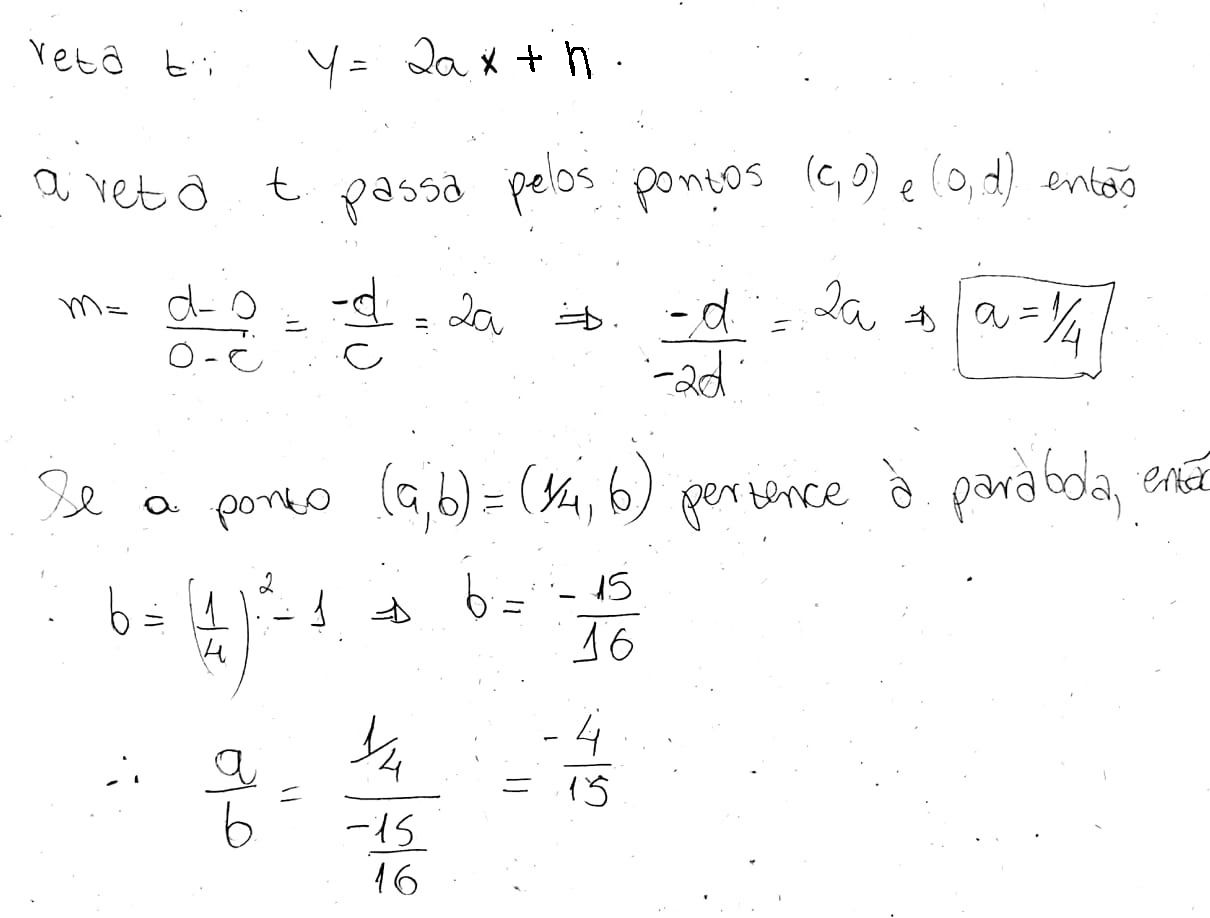 reta t: y = 2ax + n.
a reta t passa pelos pontos (c,0) e (0,d) então
m = \frac{d-0}{0-c} = \frac{-d}{c} = 2a ⇒ \frac{-d}{-2d} = 2a ⇒ a = 1/4
Se a ponto (a,b) = (1/4, b) pertence à paràbola, entã
b = (\frac{1}{4})^2 - 1 ⇒ b = \frac{-15}{16}
∴ \frac{a}{b} = \frac{1/4}{\frac{-15}{16}} = \frac{-4}{15}